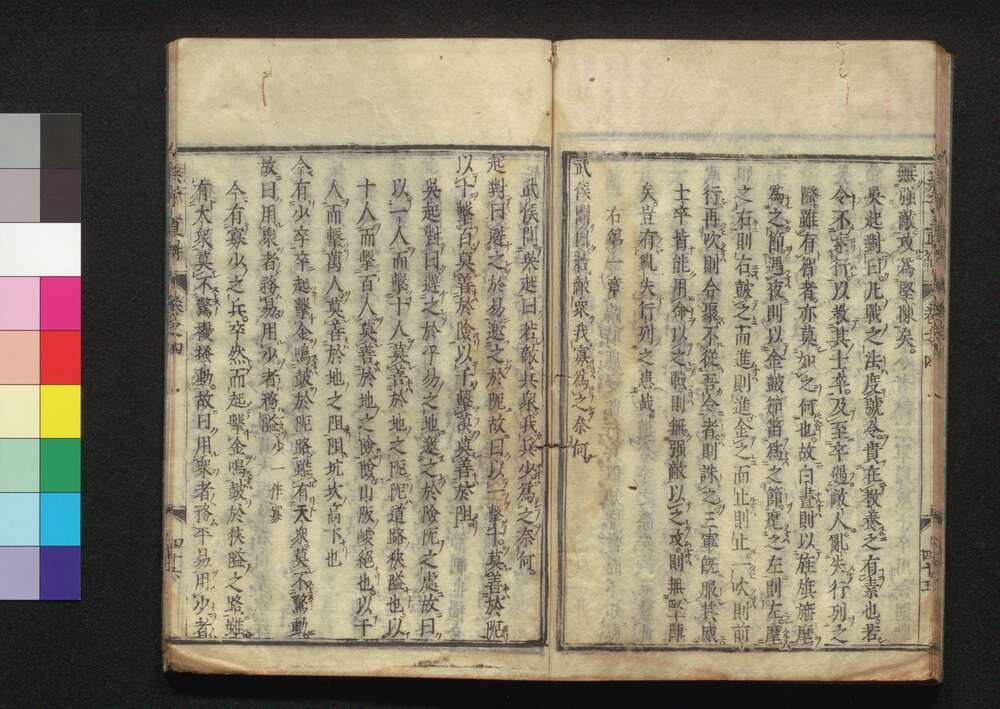 無强敵攻爲堅陳矣。
吳起對曰凡戰之法度號令貴在敎養之有素也。若
令不素行以敎其士卒及至卒遇敵人亂失行列之
際雖有智者亦莫如之何也故曰晝則以旌旗旛麾
爲之節遇夜則以金鼓笳笛爲之節麾之左則左麾
之右則右鼓之而進則進金之而止則止一吹則前
行再吹則合聚不從吾令者則誅之三軍旣服其威
士卒皆能用命以之戰則無强敵以之攻則無堅陣
矣豈有亂失行列之患哉
右第一章
武侯問曰若敵衆我寡爲之奈何
武侯問吳起曰若敵兵衆我兵少爲之奈何。
起對曰避之於易邀之於阨故曰以一擊十莫善於阨
以十擊百莫善於險以千擊萬莫善於阻
吳起對曰避之於平易之地邀之於險阨之處故曰
以一人而擊十人莫善於地之阨阨道路狹隘也以
十人而擊百人莫善於地之險險山阪峻絕也以千
人而擊萬人莫善於地之阻阻坑坎高下也
今有少卒卒起擊金鳴鼓於阨路雖有大衆莫不驚動
故曰用衆者務易用少者務隘少一作寡
今有寡少之兵卒然而起擊金鳴鼓於狹隘之路雖
有大衆莫不驚擾搖動故曰用衆者務平易用少者
卷之四
四十五
直解
卷之四
四十六